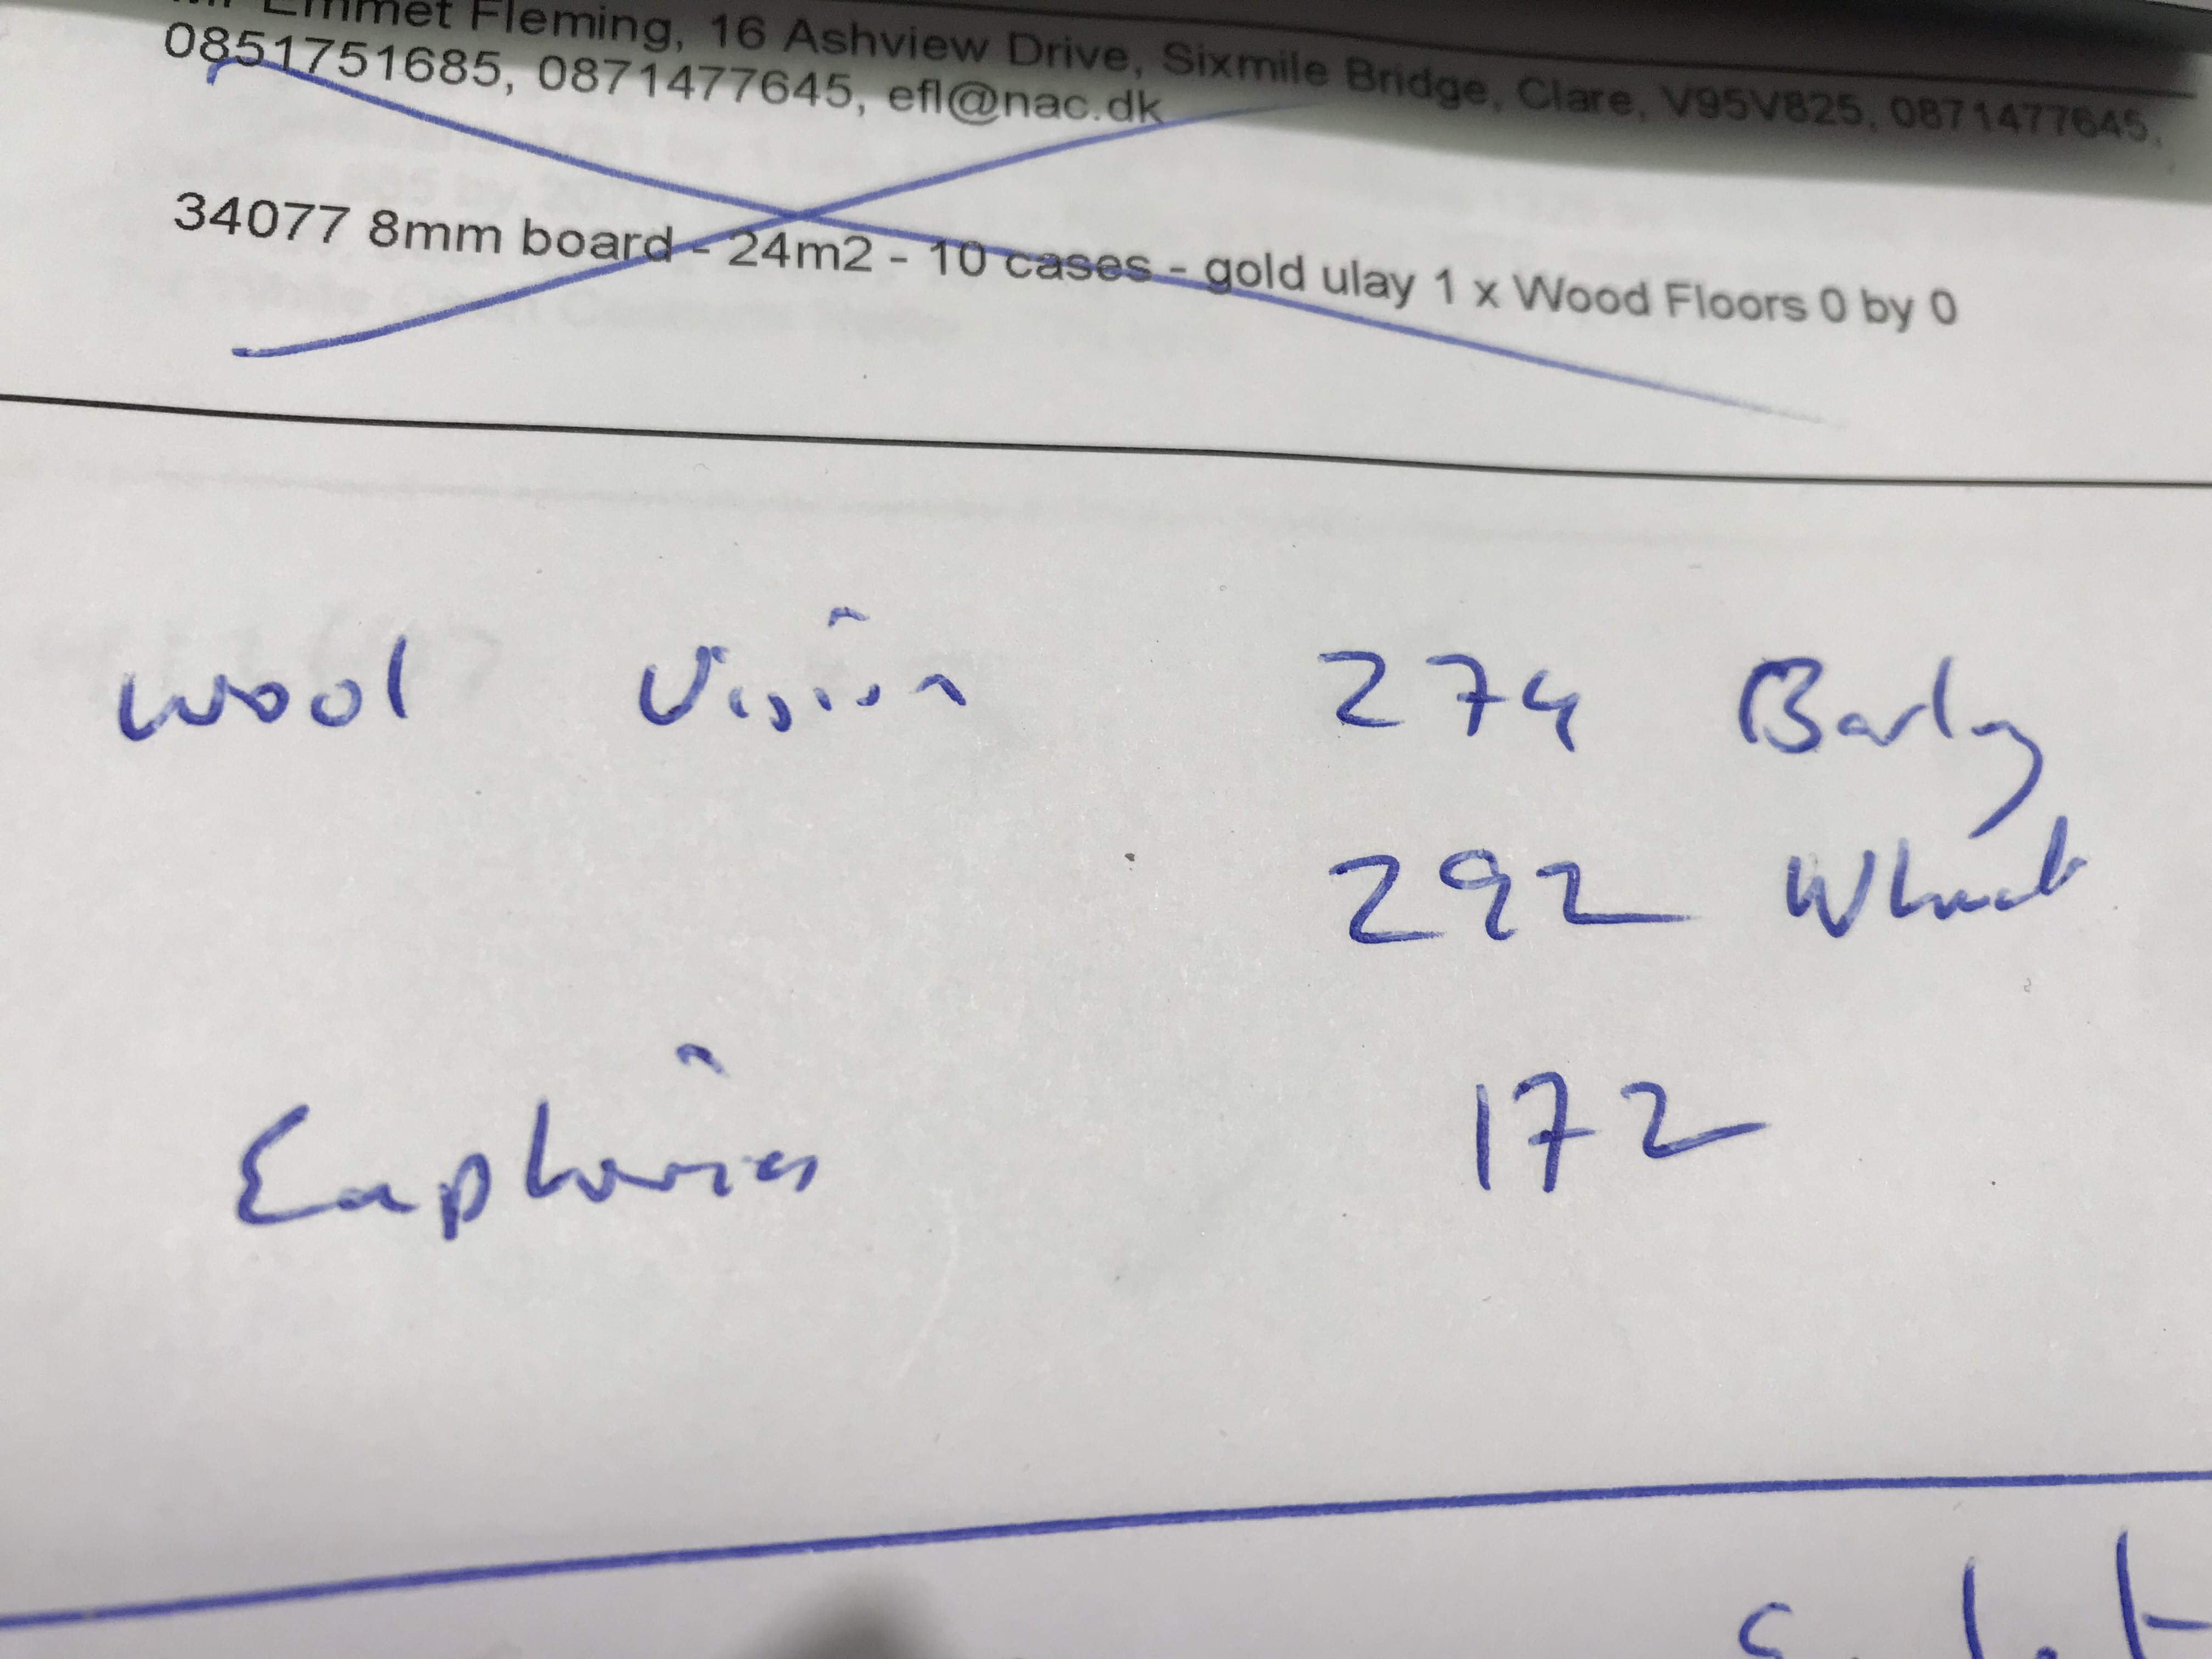 Mr Emmet Fleming, 16 Ashview Drive, Sixmile Bridge, Clare, V95V825, 0871477645,
0851751685, 0871477645, efl@nac.dk
34077 8mm board - 24m2 - 10 cases - gold ulay 1 x Wood Floors 0 by 0
Wool Vision 274 Barley
292 Wheat
172